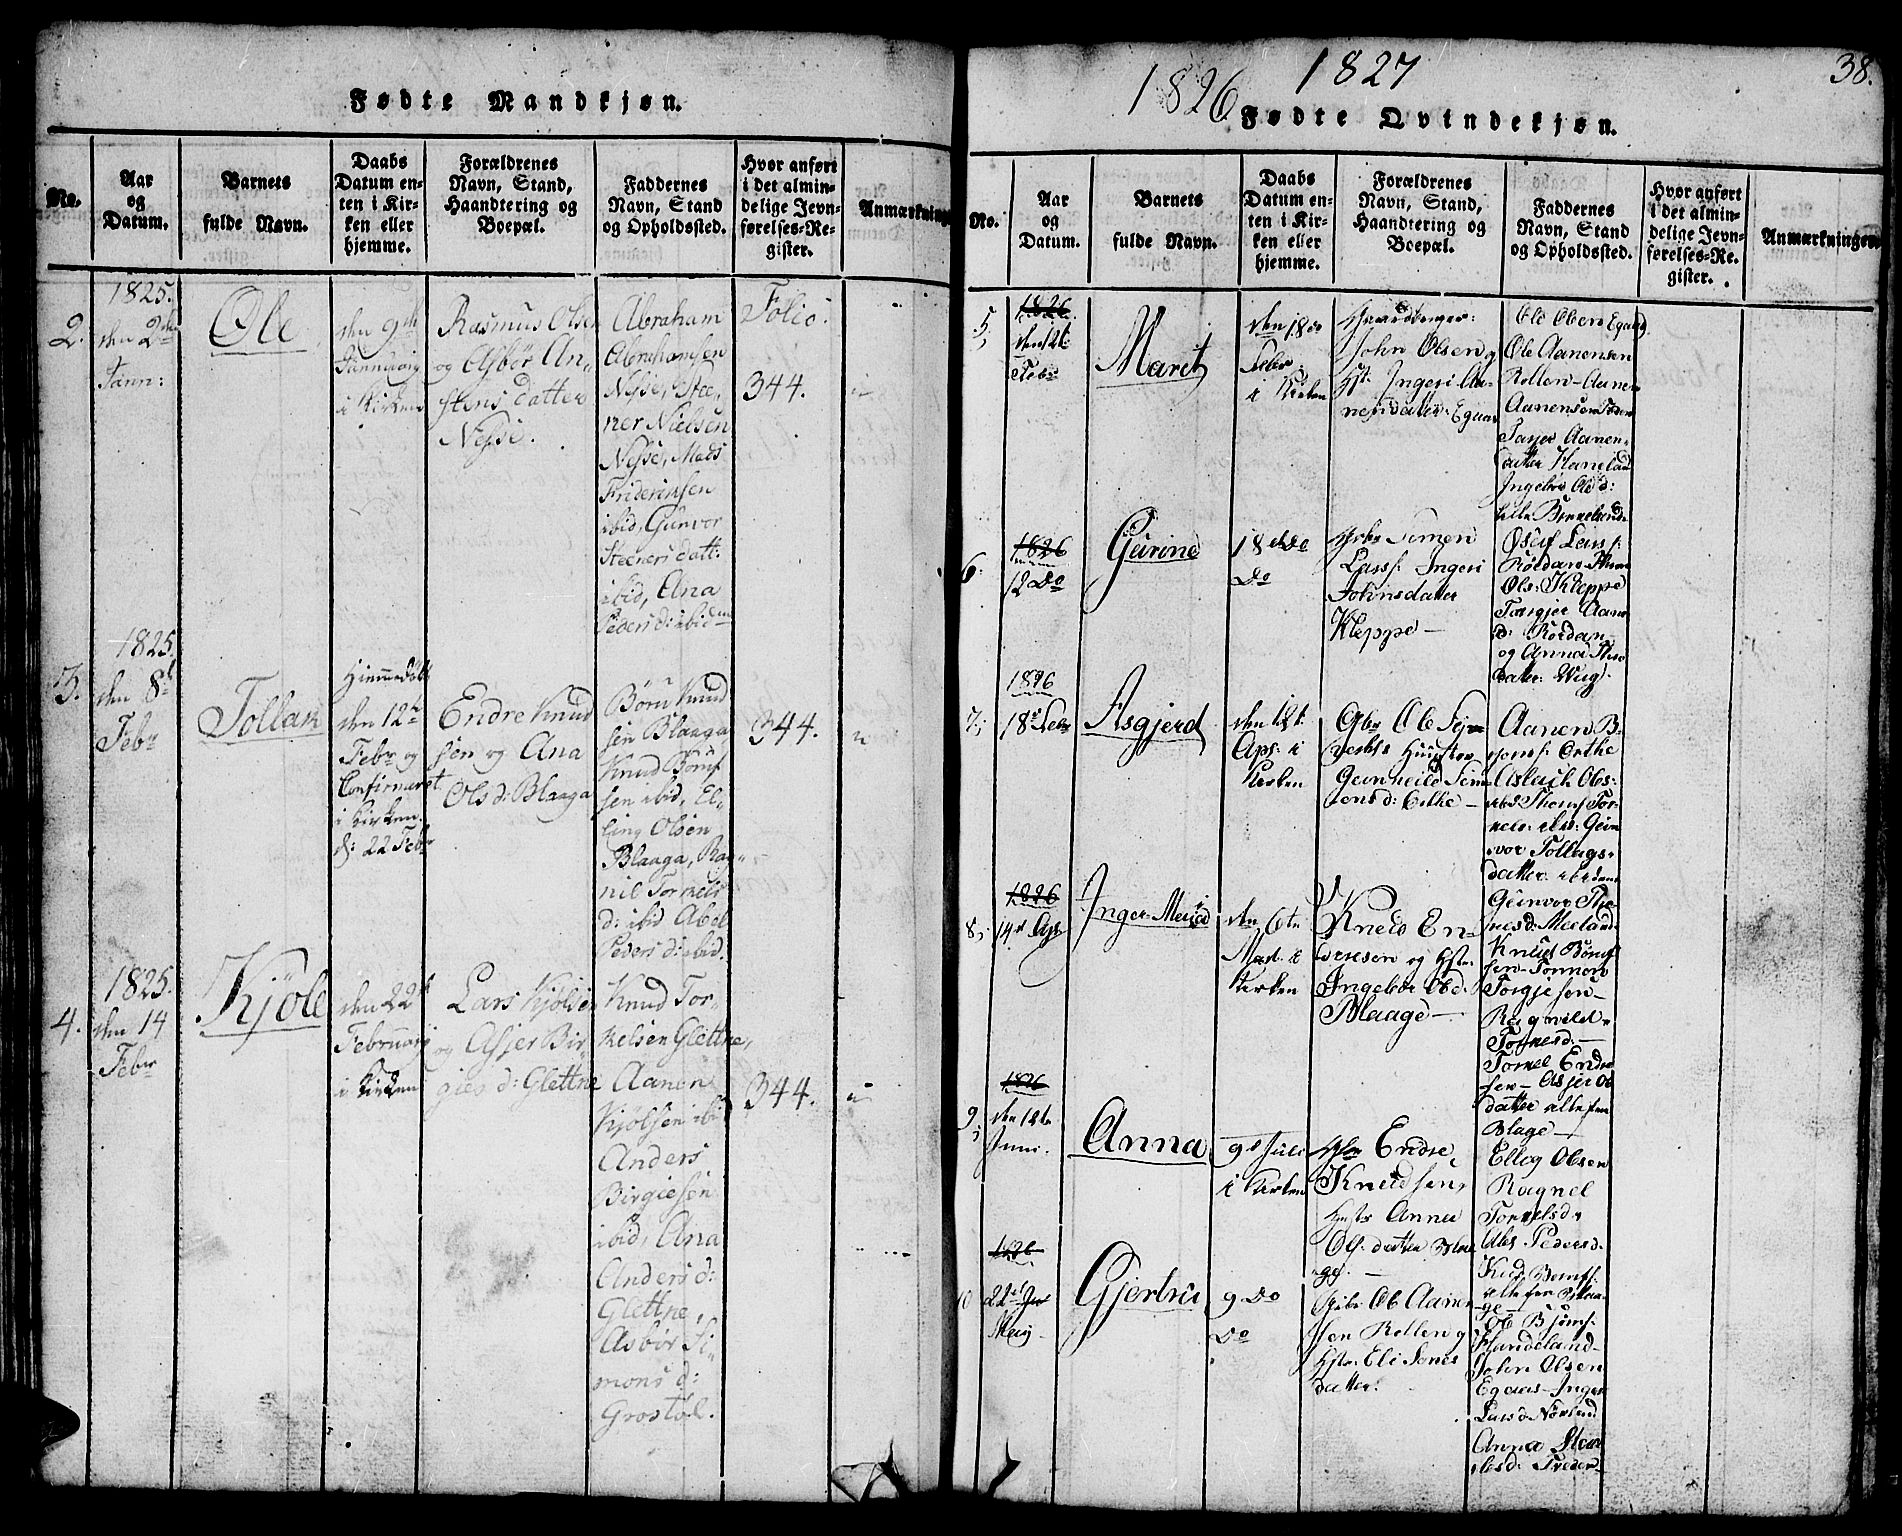 Fødte Mandkjøn.
No.
Aar
og
Datum.
Barnets
fulde Navn.
Daabs
Datum en-
ten i Kir-
ken eller
hjemme.
Forældrenes
Navn, Stand,
Haandtering og
Boepæl.
Faddernes
Navn, Stand
og Opholdssted.
Hvor anført
i det almin-
delige Jevn-
førelses-Re-
gister.
Anmærkning
2.
1825.
den 2den
Jann:
Ole
den 9de
Januarij
i Kirken
Rasmus Olsen
og Asbør An-
stens datter
Nesse.
Abraham
Abrahamsen
Nesse, Ste-
ner Nielsen
Nesse, Mads
Friderinsen
ibid, Gunvor
Steeners datt:
ibid, Elna
Peders d: ibid
Folio:
344.
3.
1825.
den 8de
Febr
Tollak
Hjemmedøbt
den 12te
Febr og
Confirmeret
i Kirken
d: 22 Febr
Endre Knud
sen og Ana
Ols d: Blaaga
Børu Knud
sen Blaaga
Knud Børuf
sen ibid, El-
ling Olsen
Blaaga, Rag-
nil Tormels
d: ibid Abel
Peders d: ibid.
344.
4.
1825.
den 14
Febr
Kjöle
den 22de
Februarij
i Kirken
Lars Kjölsen
og Asjer Bir
gies d: Glettne
Knud Tor-
kelsen Glettne,
Aanen
Kjölsen ibi
Anders
Birgiesen
ibid, Ana
Anders d:
Glettne,
Asbör Si-
mons d:
Grostöl.
344.
1826
1827
38.
Fødte Qvindekjøn.
No.
Aar
og
Datum.
Barnets
fulde Navn.
Daabs
Datum en-
ten i Kir-
ken eller
hjemme.
Forældrenes
Navn, Stand,
Haandtering og
Boepæl.
Faddernes
Navn, Stand
og Opholdssted.
Hvor anført
i det almin-
delige Jevn-
førelses-Re-
gister.
Anmærkninger
5,
1826
den 12t
Febr
Maret
den 18de
Febr
i Kirken
John Olsen og
Hst. Ingeri Aa-
nensdater Egaas
Ole Olsen Egaas,
Ole Aanensen
Rollen-Aanen
Aanensen
Tarjer Aanen-
datter Haneland
Ingebor Ols d:
lille Birkeland
6:
1826
12 Do
Gurine
18 de Do
Do
Simen
Larss: Ingeri
Johnsdater
Kleppe—
Oluf Larss:
Røldan-
Ols: Kleppe
Torgjer Aanen
d: Røldan-
og Anna
dater: Wug.
7,
1826
18de Febr
Asgjerd
den 12t.
Apr. i
Kirken
Gbr Ole Sy-
verts Hustrue
Gunheild Sim
ens d: Erthe—
Aanen B-
jorns: Erthe
Aslach Ols-
ibd. Thoms Tor-
Gun
vor Tollags-
datter ibidem
8,
1826
14de Apr
Inger Maria
den 6te
Mai i
Kirken
Knud En-
dresen og Hstr.
Ingebor Ols d.
Blaage—
Gunvor The-
nesd: Meeland
Knud Børuf
sen-Tormon
Torgjesen—
Ragnild-
Tormesd:—
Tormel Endre
sen— Asjer Ol
datter alle fra
Blage—
9,
1826
den 12te
Juni.
Anna
9de Juli
i Kirken
Endre
Knudsen,
Hustr Anna
Ols datter Blaa
ge.—
Elleg Olsen
Ragnel
Tormelsd-
Abs Pedersd.
Knd. Børufs:
alle fra Blaa-
ge—
10
1826
22de
Gjertru
9 Do
Do
Ole Aanen-
sen Rollen og
Hstr. Eli Jones
datter.
Ole Bjørns:
Hundeland-
John Olsen
Egaas-Inger
Larsd: Nørland
Anna Stee
Freder-